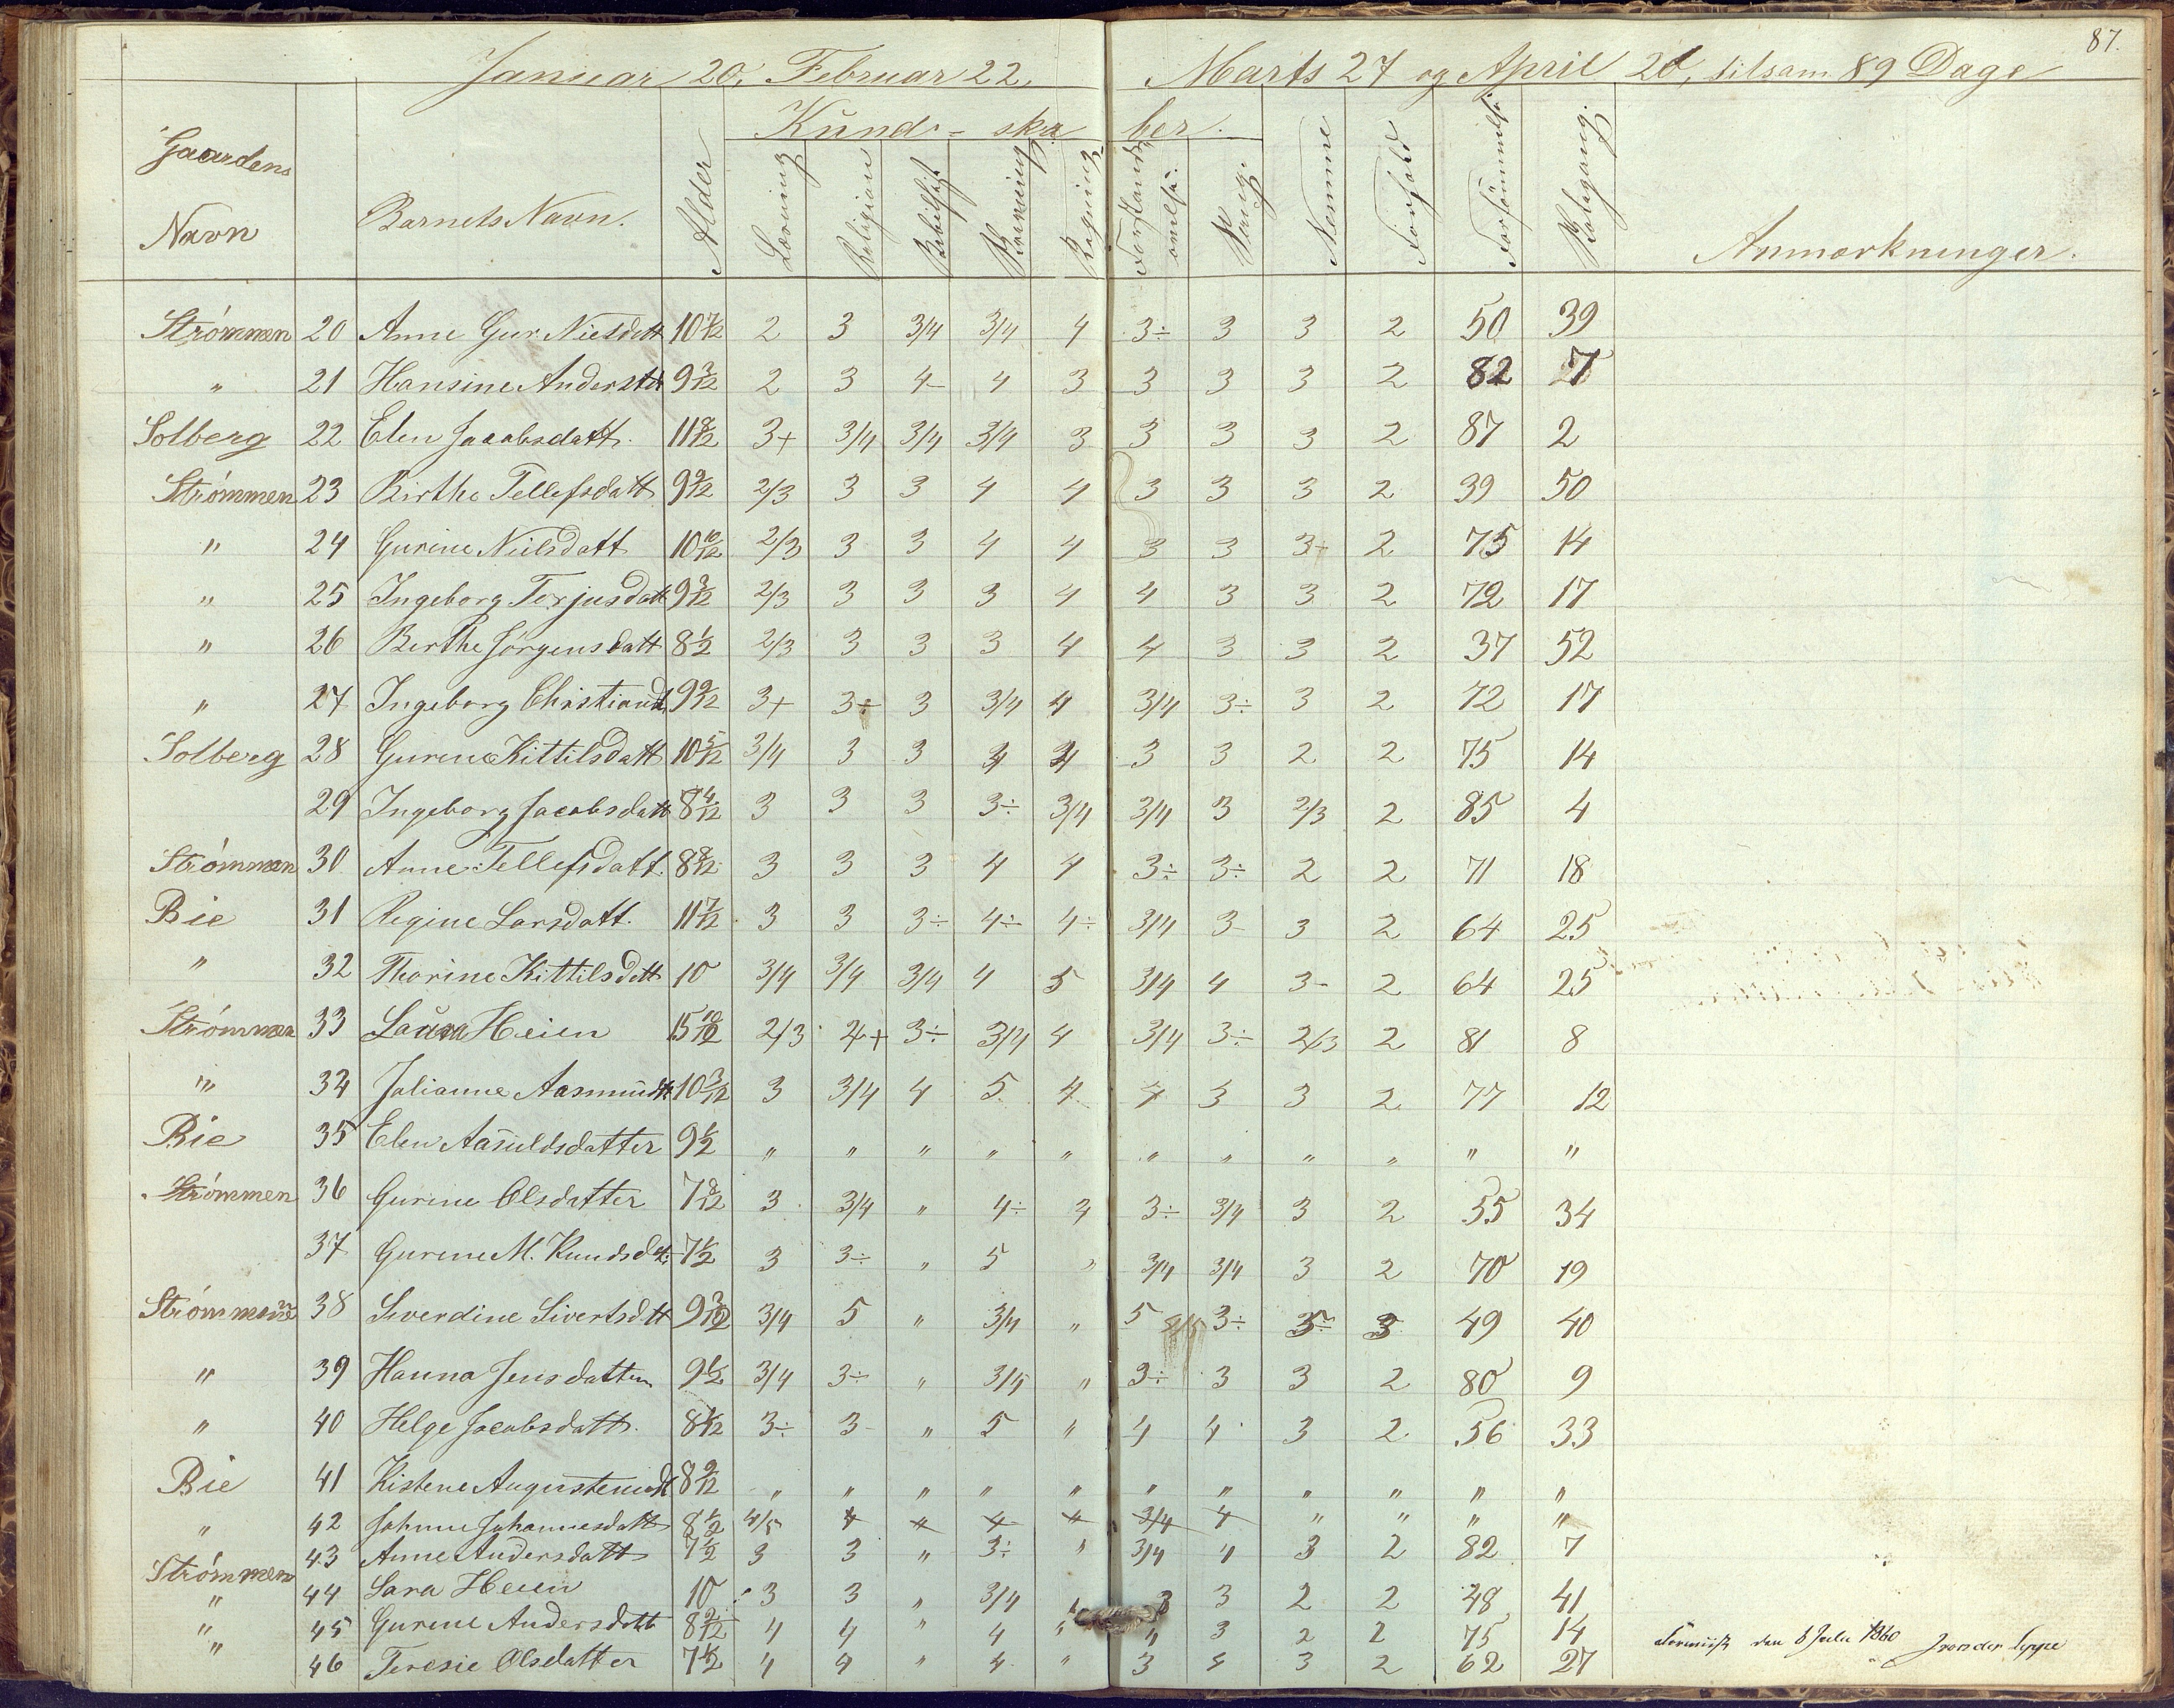 87.
Januar 20, Februar 22, Marts 27 og April 20, tilsam. 89 Dage
Gaardens Navn | Barnets Navn. | Alder | Kund-skaber. | Læsning | Religion | Skrivning | Regning | Sang | Nemme | Forhold | Forsømmelse | Anmærkninger.
Strömmen 20 Anne Gur. Nielsdatt 10 7/12 2 3 3/4 3/4 4 3÷ 3 3 2 50 39
" 21 Hansine Andersdt 9 3/12 2 3 4- 4 3 3 3 3 2 82 7
Solberg 22 Elen Jacobsdatt. 11 8/12 3+ 3/4 3/4 3/4 3 3 3 3 2 87 2
Strömmen 23 Birthe Tellefsdatt 9 9/12 2/3 3 3 4 4 3 3 3 2 39 50
" 24 Gurine Nielsdatt 10 10/12 2/3 3 3 4 4 3 3 3÷ 2 75 14
" 25 Ingeborg Terjusdatt 9 3/12 2/3 3 3 3 4 4 3 3 2 72 17
" 26 Berthe Jörgensdatt 8 1/2 2/3 3 3 3 4 4 3 3 2 37 52
" 27 Ingeborg Christiansd. 9 9/12 3+ 3÷ 3 3/4 4 3/4 3÷ 3 2 72 17
Solberg 28 Gurine Kittilsdatt 10 5/12 3/4 3 3 4 4 3 3 2 2 75 14
29 Ingeborg Jacobsdatt 8 4/12 3 3 3 3÷ 3/4 3/4 3 2/3 2 85 4
Strömmen 30 Anne Tellefsdatt. 8 8/12 3 3 3 4 4 3÷ 3÷ 2 2 71 18
Bie 31 Regine Larsdatt. 11 7/12 3 3 3÷ 4÷ 4÷ 3/4 3- 3 2 64 25
" 32 Thorine Kittilsdatt 10 3/4 3/4 3/4 4 5 3/4 4 3- 2 64 25
Strömmen 33 Laura Heien 15 10/12 2/3 2+ 3÷ 3/4 4 3/4 3÷ 2/3 2 81 8
" 34 Julianne Aasmundt 10 3/12 3 3/4 4 5 4 4 3 3 2 77 12
Bie 35 Elen Aasuldsdatter 9 1/2 " " " " " " " " " " "
Strömmen 36 Gurine Olsdatter 7 8/12 3 3/4 " 4÷ 3 3÷ 3/4 3 2 55 34
37 Gurine M. Knudsdt. 7 1/2 3 3÷ " 5 " 3/4 3/4 3 2 70 19
Strömmen 38 Siverdine Sivertsdtt 9 3/12 3/4 5 " 3/4 " 5 3÷ 3 3 49 40
" 39 Hanna Jensdatter 9 1/2 3/4 3÷ " 3/4 " 3÷ 3 3 2 80 9
" 40 Helge Jacobsdatt. 8 1/12 3÷ 3- " 5 " 4 4 3 2 56 33
Bie 41 Kistene Augustensdt 8 9/12 " " " " " " " " " " "
" 42 Johnne Johannesdatt 8 1/2 4/5 4 4 4 4 3/4 4 " " " "
Strömmen 43 Anne Andersdatt 7 1/2 3 3 " 3÷ " 3/4 4 3 2 82 7
" 44 Sara Heien 10 3 3 " 3/4 3 3 2 2 48 41
" 45 Gurine Andersdatt 8 2/12 4 4 " 4 " 4 3 2 2 75 14
" 46 Teresie Olsdatter 7 1/2 4 4 " 4 " 3 4 3 2 62 27
den 8 Julii 1860